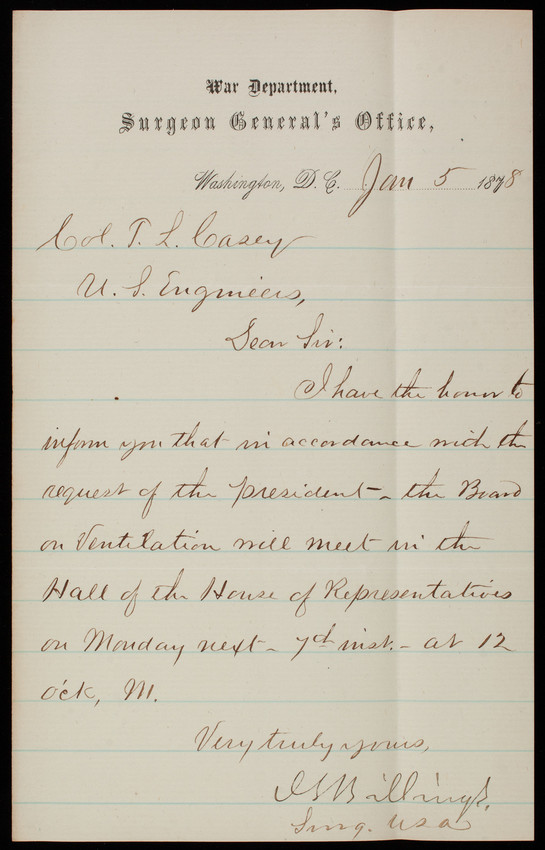 War Department,
Surgeon General's Office,
Washington, D. C. Jan 5 1878
Col. T. L. Casey
U. S. Engineers,
Dear Sir:
I have the honor to
inform you that in accordance with the
request of the president - the Board
on Ventilation will meet in the
Hall of the House of Representatives
on Monday next - 7th inst. - at 12
o'ck, M.
Very truly yours,
J S Billings.
Surg. U S A